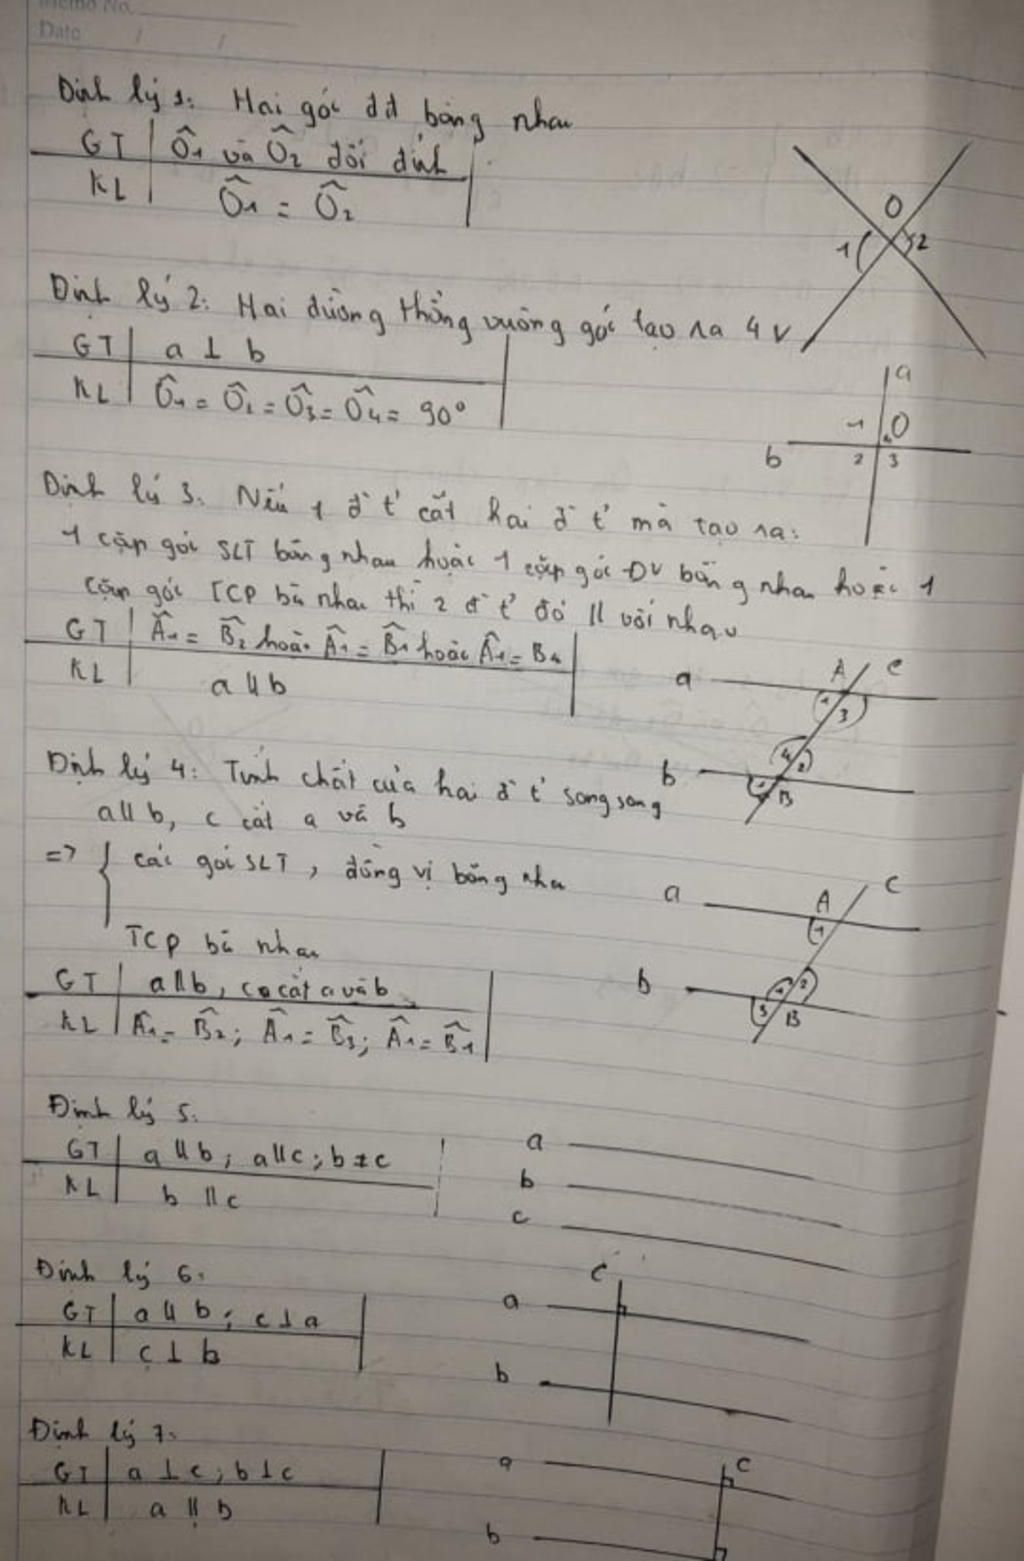 Memo No.
Date / /
Định lý 1: Hai góc đđ bằng nhau
GT | Ô1 và Ô2 đối đỉnh
KL | Ô1 = Ô2
O
1 2
Định lý 2: Hai đường thẳng vuông góc tạo ra 4 v
GT | a ⊥ b
KL | Ô1 = Ô2 = Ô3 = Ô4 = 90°
a
1 O
b 2 3
Định lí 3: Nếu 1 đ t' cắt hai đ t' mà tạo ra:
1 cặp góc SLT bằng nhau hoặc 1 cặp góc ĐV bằng nhau hoặc 1
cặp góc TCP bù nhau thì 2 đ t' đó // với nhau
GT | Â1 = B̂2 hoặc Â1 = B̂1 hoặc Â1 = B4
KL | a // b
A c
a
1 3
b 4 2
1 B
Định lý 4: Tính chất của hai đ t' song song
a // b, c cắt a và b
=> { các góc SLT, đồng vị bằng nha
TCP bù nhau
GT | a // b, c cắt a và b
KL | Â1 = B̂2; Â1 = B̂3; Â1 = B̂1
c
a A
1
b 1 2
3 B
Định lý 5:
GT | a // b; a // c; b ≠ c
KL | b // c
a
b
c
Định lý 6:
GT | a // b; c ⊥ a
KL | c ⊥ b
c
a
b
Định lý 7:
GT | a ⊥ c; b ⊥ c
KL | a // b
a c
b